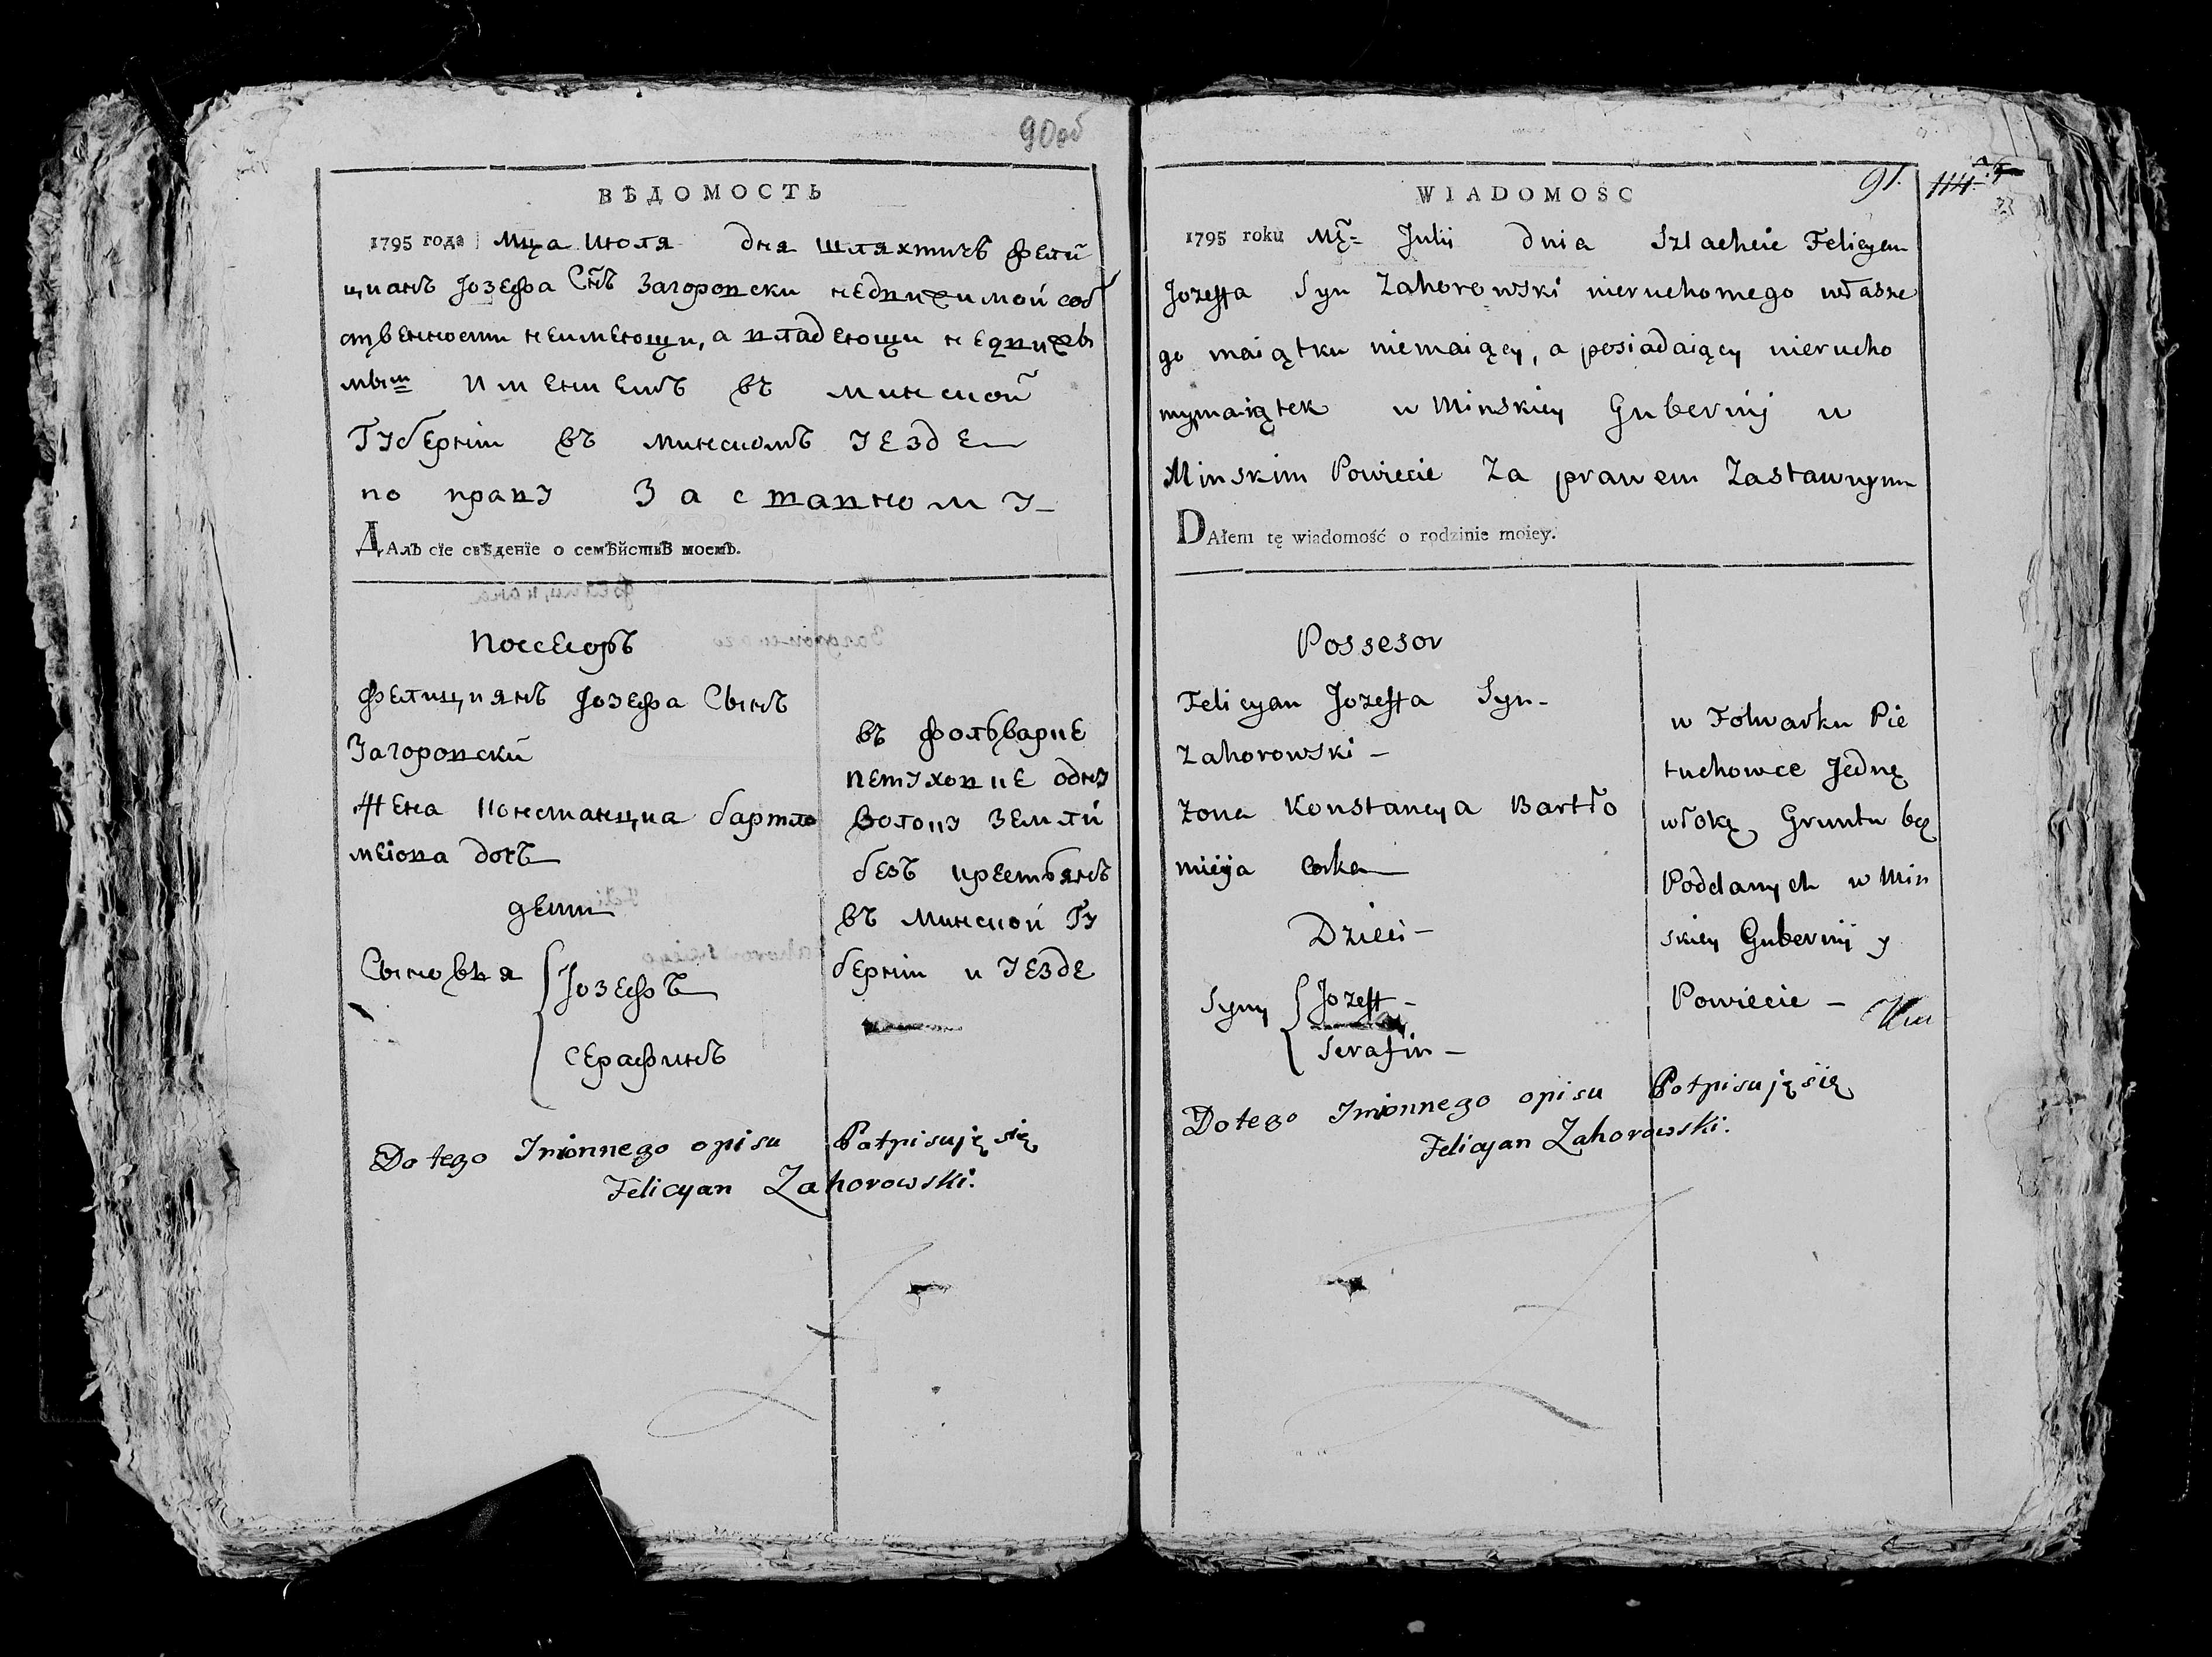 90об
ВѢДОМОСТЬ
1795 года Мца Июля дня шляхтичъ Фели
цианъ Јозефа Снъ Загоровски недвижимой соб
ственности неимеющи, а владеющи недвижи
мым имениемъ въ минской
Губерніи въ минскомъ уезде
по праву Заставному
ДАлъ сїе свѣденїе о семѣйствѣ моемъ.
Поссесоръ
Фелициянъ Јозефа Сынъ
Загоровски
Жена Констанциа бартло
меіова дочъ
дети
Сыновья Јозефъ
Серафинъ
въ фольварке
петуховке одну
волоку земли
безъ крестьянъ
въ Минской Гу
берніи и уезде
Do tego Imionnego opisu Potpisuję się
Felicyan Zahorowski.
91. 114
WIADOMOSC
1795 roku Mca Julii dnia Szlachcic Felicyan
Jozeffa Syn Zahorowski nieruchomego własne
go maiątku niemaiący, a posiadaiący nierucho
mymaiątek w Minskiey Gubernij w
Minskim Powiecie Za prawem Zastawnym
DAłem tę wiadomość o rodzinie moiey.
Possesor
Felicyan Jozeffa Syn-
Zahorowski -
Zona Konstancya Bartło
mieja Corka
Dzieci -
Syny Jozeff -
Serafin -
w Folwarku Pie
tuchowce Jednę
włokę Gruntu bez
Poddanych w Min
skiey Gubernij y
Powiecie -
Do tego Imionnego opisu Potpisuję się
Felicyan Zahorowski.